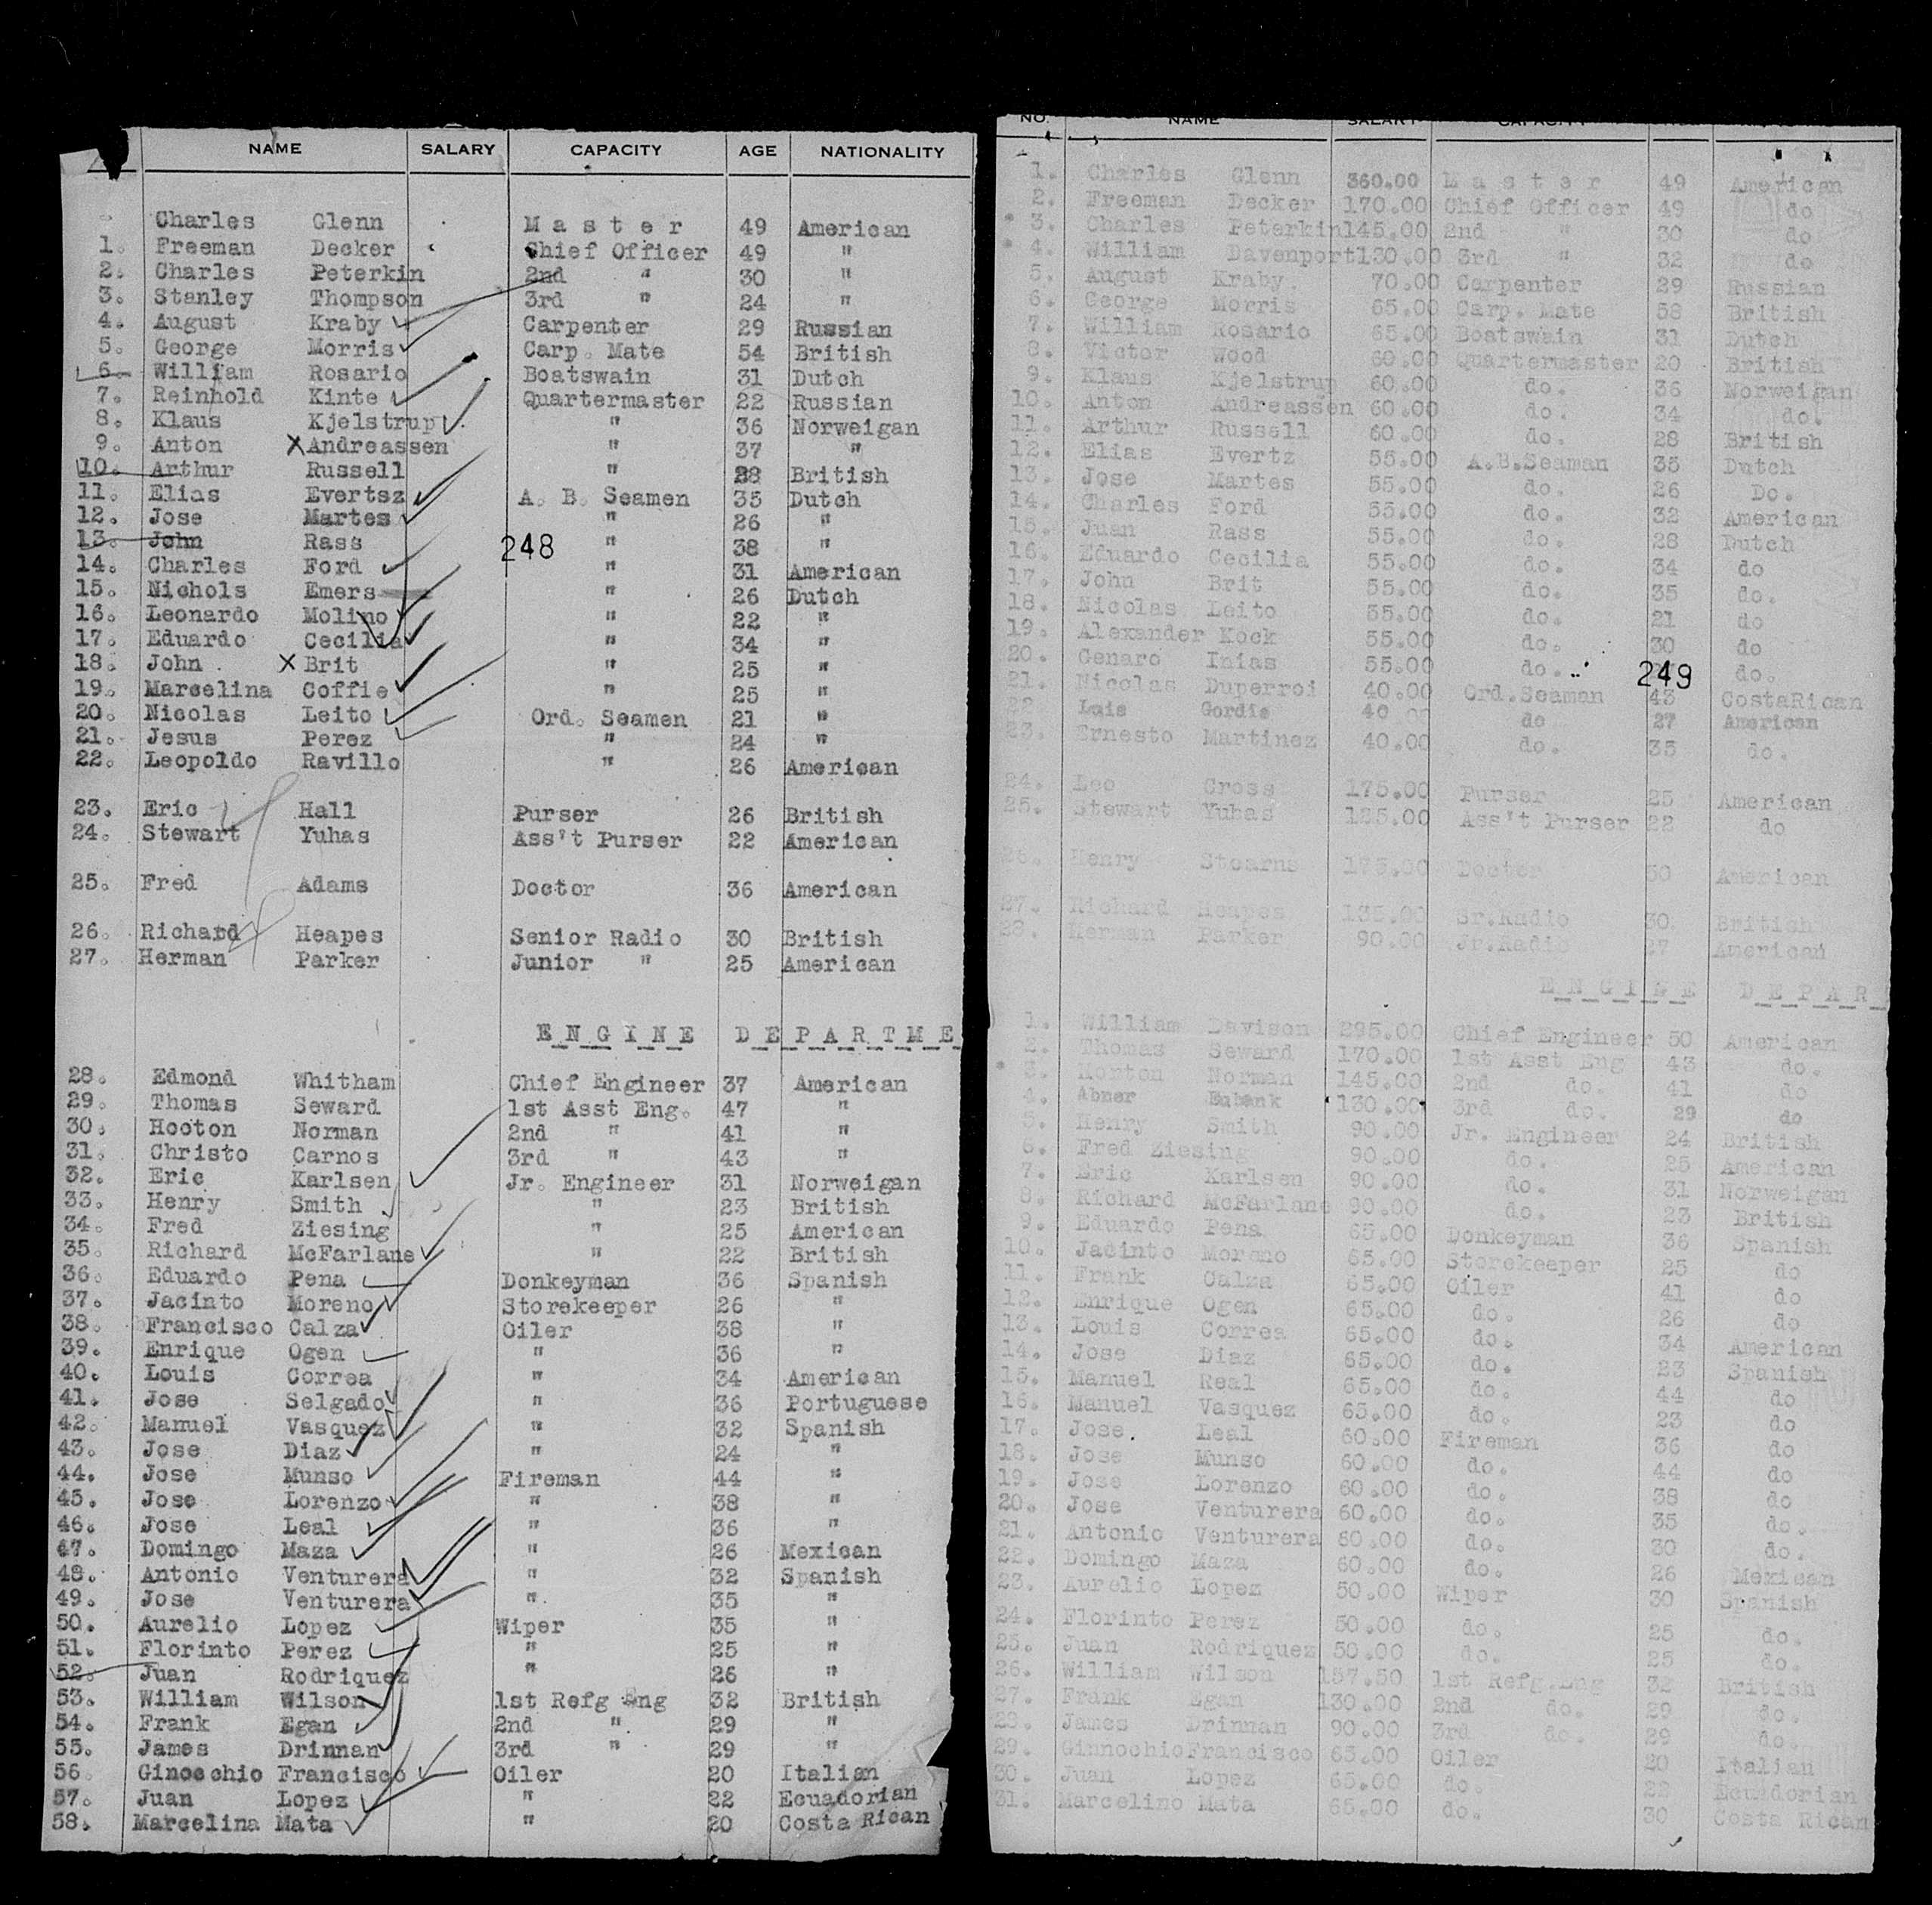 NAME SALARY CAPACITY AGE NATIONALITY
Charles Glenn M a s t e r 49 American
1. Freeman Decker Chief Officer 49 "
2. Charles Peterkin 2nd " 30 "
3. Stanley Thompson 3rd " 24 "
4. August Kraby Carpenter 29 Russian
5. George Morris Carp. Mate 54 British
6. William Rosario Boatswain 31 Dutch
7. Reinhold Kinte Quartermaster 22 Russian
8. Klaus Kjelstrup " 36 Norweigan
9. Anton X Andreassen " 37 "
10. Arthur Russell " 28 British
11. Elias Evertsz A. B. Seamen 35 Dutch
12. Jose Martes " 26 "
13. John Rass 248 " 38 "
14. Charles Ford " 31 American
15. Nichols Emers " 26 Dutch
16. Leonardo Molino " 22 "
17. Eduardo Cecilia " 34 "
18. John X Brit " 25 "
19. Marcelina Coffie " 25 "
20. Nicolas Leito Ord. Seamen 21 "
21. Jesus Perez " 24 "
22. Leopoldo Ravillo " 26 American
23. Eric Hall Purser 26 British
24. Stewart Yuhas Ass't Purser 22 American
25. Fred Adams Doctor 36 American
26. Richard Heapes Senior Radio 30 British
27. Herman Parker Junior " 25 American
E N G I N E D E P A R T M E
28. Edmond Whitham Chief Engineer 37 American
29. Thomas Seward 1st Asst Eng. 47 "
30. Hooton Norman 2nd " 41 "
31. Christo Carnos 3rd " 43 "
32. Eric Karlsen Jr. Engineer 31 Norweigan
33. Henry Smith " 23 British
34. Fred Ziesing " 25 American
35. Richard McFarlane " 22 British
36. Eduardo Pena Donkeyman 36 Spanish
37. Jacinto Moreno Storekeeper 26 "
38. Francisco Calza Oiler 38 "
39. Enrique Ogen " 36 "
40. Louis Correa " 34 American
41. Jose Selgado " 36 Portuguese
42. Manuel Vasquez " 32 Spanish
43. Jose Diaz " 24 "
44. Jose Munso Fireman 44 "
45. Jose Lorenzo " 38 "
46. Jose Leal " 36 "
47. Domingo Maza " 26 Mexican
48. Antonio Venturera " 32 Spanish
49. Jose Venturera " 35 "
50. Aurelio Lopez Wiper 35 "
51. Florinto Perez " 25 "
52. Juan Rodriquez " 26 "
53. William Wilson 1st Refg Eng 32 British
54. Frank Egan 2nd " 29 "
55. James Drinnan 3rd " 29 "
56 Ginocchio Francisco Oiler 20 Italian
57. Juan Lopez " 22 Ecuadorian
58. Marcelina Mata " 20 Costa Rican
NO. NAME SALARY CAPACITY
1. Charles Glenn 360.00 M a s t e r 49 American
2. Freeman Decker 170.00 Chief Officer 49 do
* 3. Charles Peterkin 145.00 2nd " 30 do
* 4. William Davenport 130.00 3rd " 32 do
5. August Kraby. 70.00 Carpenter 29 Russian
6. George Morris 65.00 Carp. Mate 58 British
7. William Rosario 65.00 Boatswain 31 Dutch
8. Victor Wood 60.00 Quartermaster 20 British
9. Klaus Kjelstrup 60.00 do. 36 Norweigan
10. Anton Andreassen 60.00 do. 34 do.
11. Arthur Russell 60.00 do. 28 British
12. Elias Evertz 55.00 A.B.Seaman 35 Dutch
13. Jose Martes 55.00 do. 26 Do.
14. Charles Ford 55.00 do. 32 American
15. Juan Rass 55.00 do. 28 Dutch
16. Eduardo Cecilia 55.00 do. 34 do
17. John Brit 55.00 do. 35 do.
18. Nicolas Leito 55.00 do. 21 do
19. Alexander Kock 55.00 do. 30 do
20. Genaro Inias 55.00 do. 249 do.
21. Nicolas Duperroi 40.00 Ord.Seaman 43 CostaRican
22 Luis Gordis 40 00 do 27 American
23. Ernesto Martinez 40.00 do. 35 do.
24. Leo Cross 175.00 Purser 25 American
25. Stewart Yuhas 125.00 Ass't Purser 22 do
26. Henry Stearns 175.00 Doctor 50 American
27. Richard Heapes 135.00 Sr.Radio 30. British
28. Herman Parker 90.00 Jr.Radio 27 American
E N G I N E D E P A R
1. William Davison 295.00 Chief Engineer 50 American
2. Thomas Seward 170.00 1st Asst Eng 43 do.
* 3. Horton Norman 145.00 2nd do. 41 do
4. Abner Eubank 130.00 3rd do. 29 do
5. Henry Smith 90.00 Jr. Engineer 24 British
6. Fred Ziesing 90.00 do. 25 American
7. Eric Karlsen 90.00 do. 31 Norweigan
8. Richard McFarlane 90.00 do. 23 British
9. Eduardo Pena 65.00 Donkeyman 36 Spanish
10. Jacinto Moreno 65.00 Storekeeper 25 do
11. Frank Calza 65.00 Oiler 41 do
12. Enrique Ogen 65.00 do. 26 do
13. Louis Correa 65.00 do. 34 American
14. Jose Diaz 65.00 do. 23 Spanish
15. Manuel Real 65.00 do. 44 do
16. Manuel Vasquez 65.00 do. 23 do
17. Jose. Leal 60.00 Fireman 36 do
18. Jose Munso 60.00 do. 44 do
19. Jose Lorenzo 60.00 do. 38 do
20. Jose Venturera 60.00 do. 35 do.
21. Antonio Venturera 60.00 do. 30 do.
22. Domingo Maza 60.00 do. 26 Mexican
23. Aurelio Lopez 50.00 Wiper 30 Spanish
24. Florinto Perez 50.00 do. 25 do.
25. Juan Rodriquez 50.00 do. 25 do.
26. William Wilson 157.50 1st Refg.Eng 32 British
27. Frank Egan 130.00 2nd do. 29 do.
28. James Drinnan 90.00 3rd do. 29 do.
29. Ginnochio Francisco 65.00 Oiler 20 Italian
30. Juan Lopez 65.00 do. 22 Ecuadorian
31. Marcelino Mata 65.00 do. 30 Costa Rican